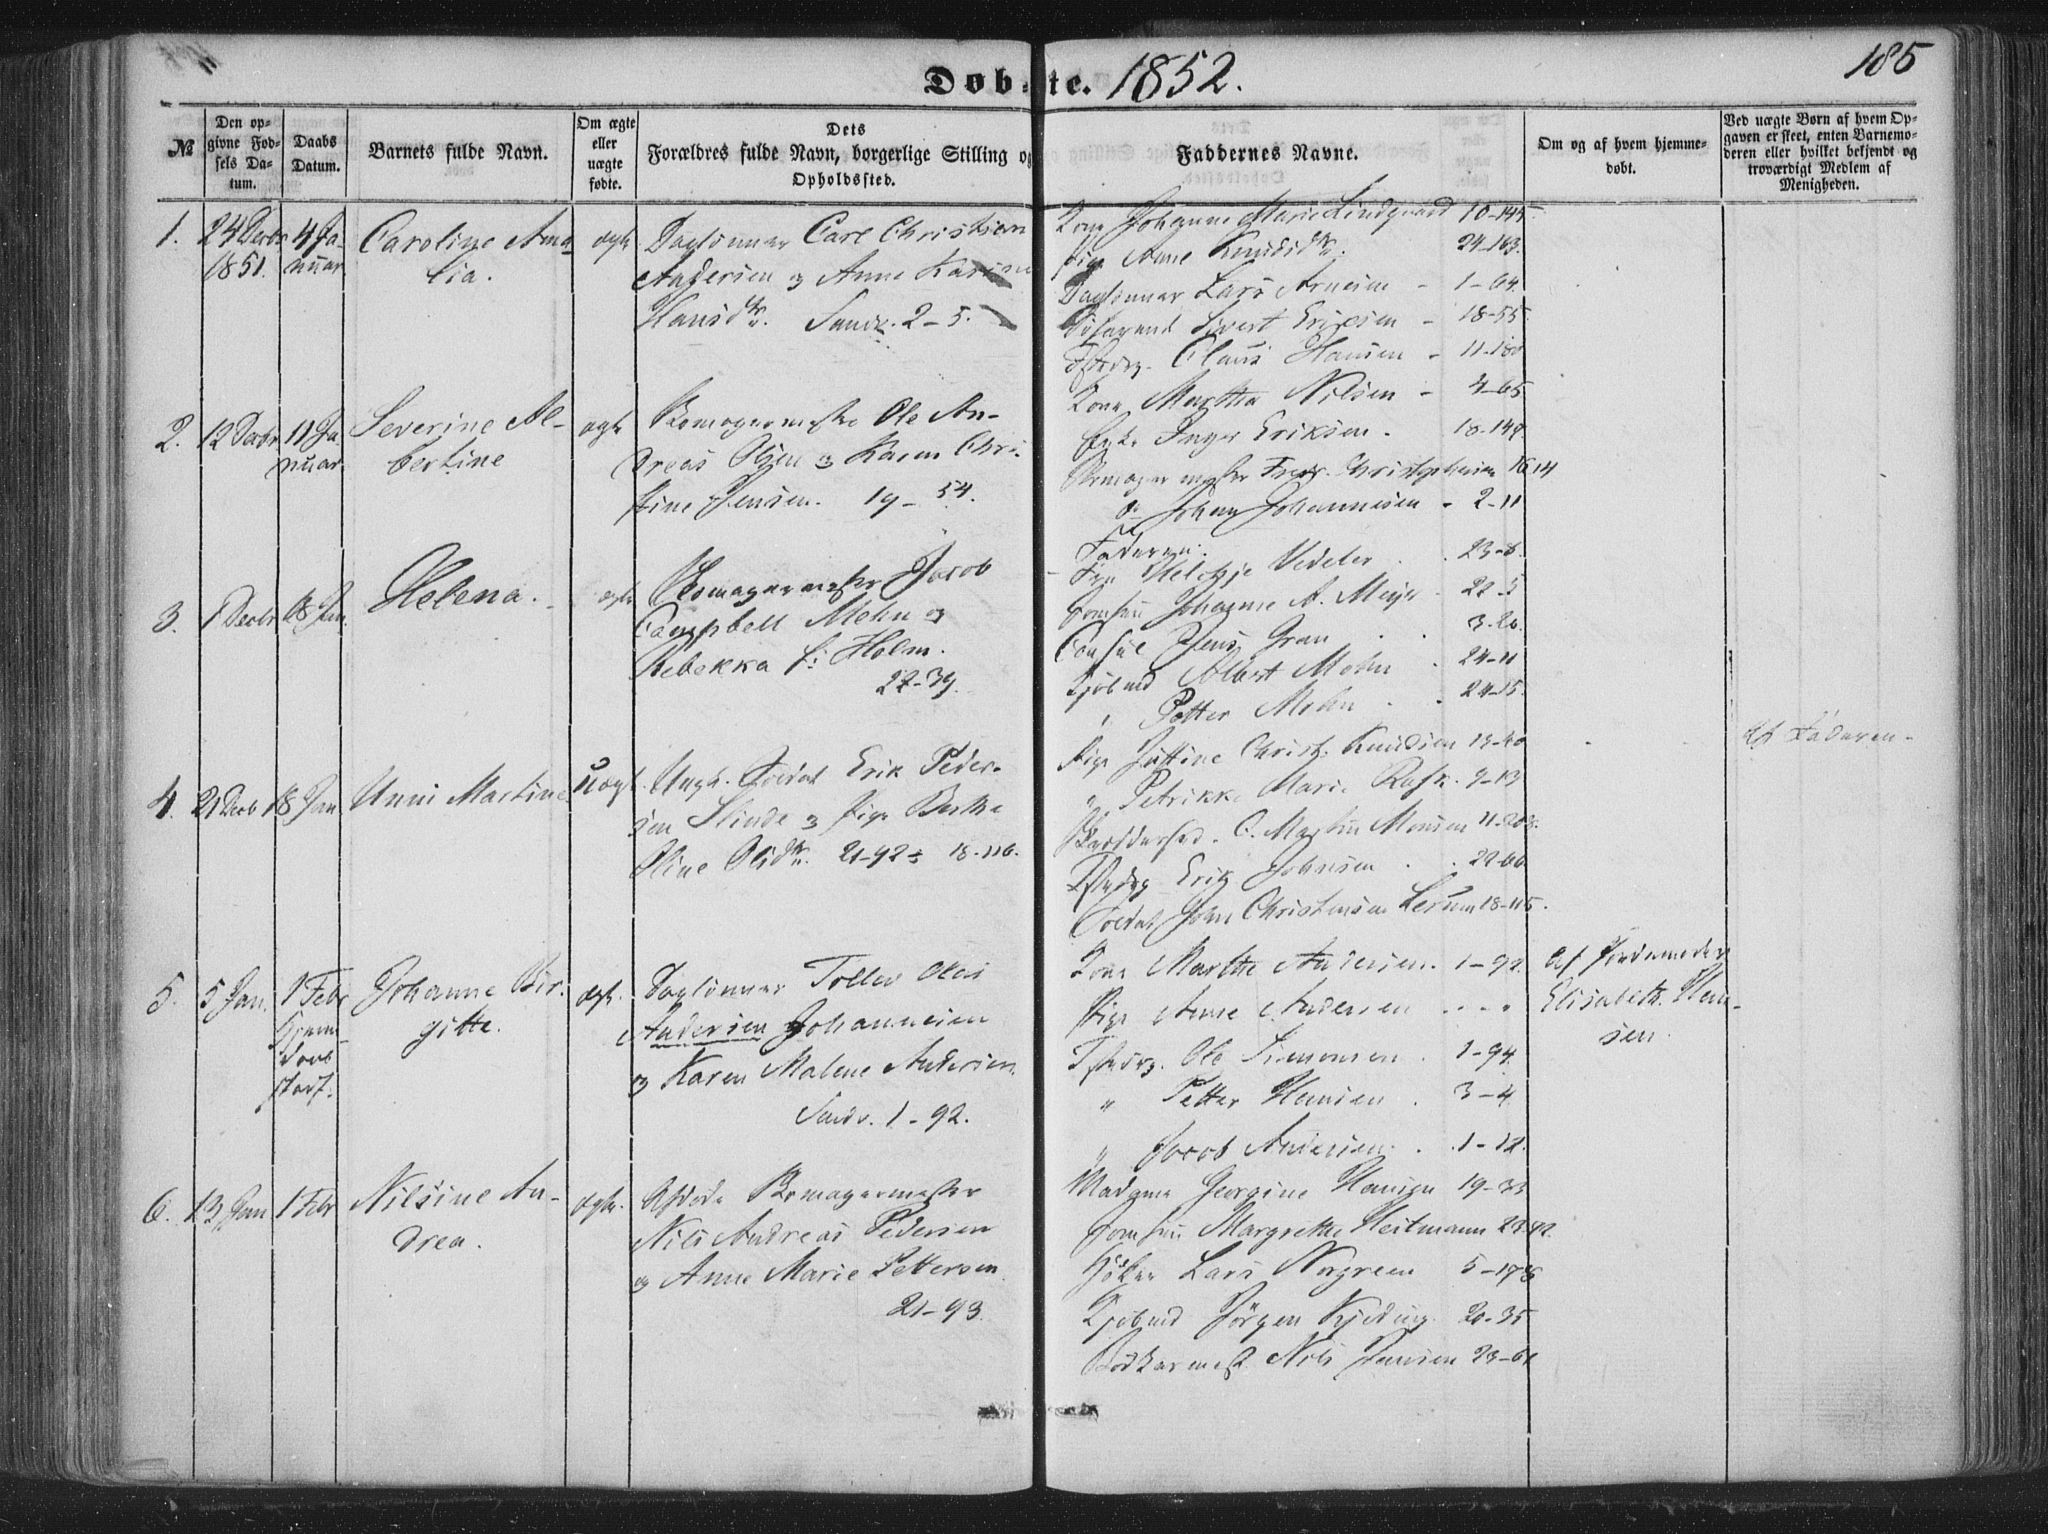 Døbte. 1852.
185
№
Den opgivne Fødsels Datum.
Daabs Datum.
Barnets fulde Navn.
Om ægte eller uægte fødte.
Dets Forældres fulde Navn, borgerlige Stilling og Opholdssted.
Faddernes Navne.
Om og af hvem hjemmedøbt.
Ved uægte Børn af hvem Opgaven er skeet, enten Barnemoderen eller hvilket bekjendt og troværdigt Medlem af Menigheden.
1. 24 Decbr 4 Ja-
1851. nuar
Caroline Ama-
lia.
ægte
Daglønner Carl Christian
Andersen og Anne Karine
Hansdtr. Sandv. 2-5.
Kone Johanne Marie Lindgaard 10-145.
Pige Anne Knudsdtr. 24-163.
Dagлønner Lars Arnesen - 1-64.
Sivert Eriksen - 18-55.
Claus Hansen - 11-180
2. 12 Decbr 11 Ja-
nuar
Severine Al-
bertine
ægte
Skomagermester Ole An-
dreas Olsen og Karen Chri-
stine Jensen. 19-54.
Kone Martha Nilsen - 4-65
Enke Inger Eriksen - 18-149.
Skomagermester Fredr. Christophersen 16-14
Do Johan Johannesen - 2-11
Faderen.
3. 1 Decbr 18 Jan.
Helena.
ægte
Skomagermester Jacob
Campbell Mohn og
Rebekka f: Holm.
22-39.
Fru Vedeler . 23-8.
Jomfru Johanne A. Meyer . 22-5
Consul Jens Gran . 3-20.
Kjøbmd Albert Mohn . 24-11
" Petter Mohn . 24-15.
4. 21 Decb 18 Jan
Unni Martine
uægte
Ungk. Soldat Erik Peder-
sen Slinde og Pige Berthe
Oline Olsdtr. 21-92 & 18-116.
Pige Justine Christ. Knudsen 13-40
" Petrikke Marie Rask. 9-13
C. Martin Monsen 11-203.
Erik Johnsen . . 22-66
Soldat John Christensen Lerum 18-115.
af Faderen.
5. 5 Jan. 1 Febr
Hjem-
døbt
stadf.
Johanne Bir-
gitte.
ægte.
Daglønner Tollev Olai
Andersen Johannesen
og Karen Malene Andersen
Sandv. 1-92.
Kone Marthe Andersen. 1-92.
Pige Anne Andersen . . . "
Ole Simonsen . 1-94.
" Petter Hansen . 3-4.
" Jacob Andersen . . 1-12.
af Jordemoder
Elisabeth Han-
sen.
6. 13 Jan 1 Febr
Nilsine An-
drea.
ægte.
Afdøde Skomagermester
Nils Andreas Pedersen
og Anne Marie Pettersen
21-93.
Madame Georgine Hansen 19-33
Jomfru Margrethe Heitmann 22-92.
Høker Lars Norgreen 5-178
Kjøbmd Jørgen Kjeding 20-35
Bødkermest. Nils Jensen 23-61